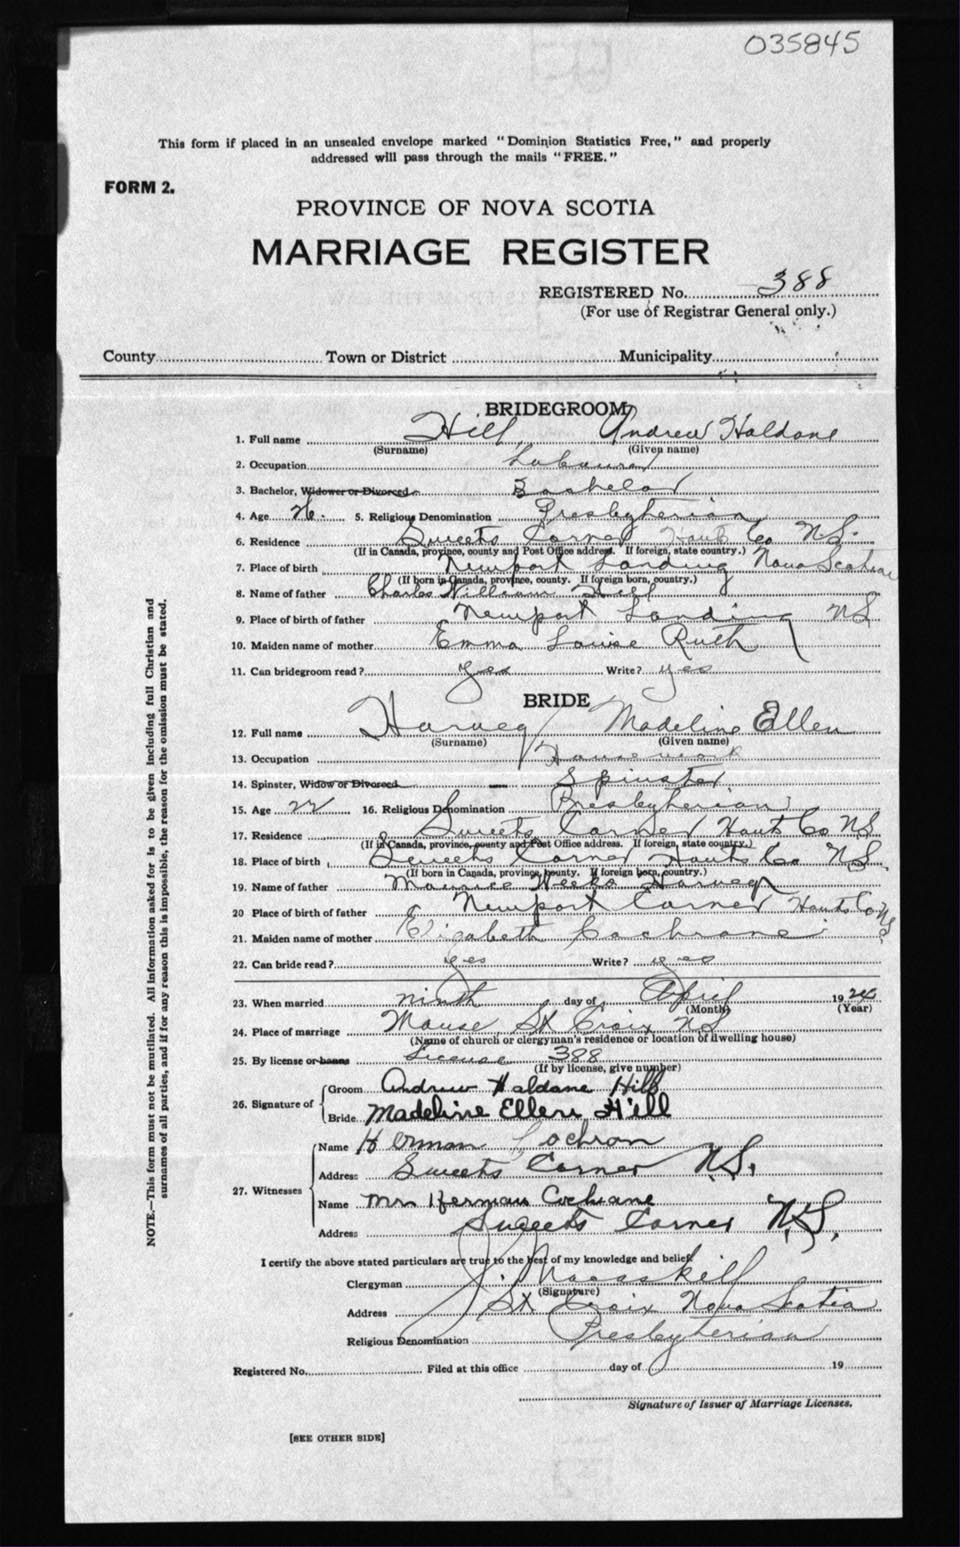 035845
This form if placed in an unsealed envelope marked "Dominion Statistics Free," and properly
addressed will pass through the mails "FREE."
FORM 2.
PROVINCE OF NOVA SCOTIA
MARRIAGE REGISTER
REGISTERED No. 388
(For use of Registrar General only.)
County Town or District Municipality
BRIDEGROOM
1. Full name Hill, Andrew Haldane
(Surname) (Given name)
2. Occupation Labourer
3. Bachelor, Widower or Divorced Bachelor
4. Age 5. Religious Denomination Presbyterian
6. Residence Sweets Corner Hants Co N.S.
(If in Canada, province, county and Post Office address. If foreign, state country.)
7. Place of birth Newport Landing Nova Scotia
(If born in Canada, province, county. If foreign born, country.)
8. Name of father Charles William Hill
9. Place of birth of father Newport Landing NS
10. Maiden name of mother Emma Louise Ruth
11. Can bridegroom read? yes Write? yes
BRIDE
12. Full name Harvey Madeline Ellen
(Surname) (Given name)
13. Occupation House work
14. Spinster, Widow or Divorced Spinster
15. Age 22 16. Religious Denomination Presbyterian
17. Residence Sweets Corner Hants Co NS
(If in Canada, province, county and Post Office address. If foreign, state country.)
18. Place of birth Sweets Corner Hants Co NS
(If born in Canada, province, county. If foreign born, country.)
19. Name of father Maurice Weeks Harvey
20 Place of birth of father Newport Corner Hants Co NS
21. Maiden name of mother Elizabeth Cochrane
22. Can bride read? yes Write? yes
23. When married ninth day of April 1924
(Month) (Year)
24. Place of marriage Manse, St Croix NS
(Name of church or clergyman's residence or location of dwelling house)
25. By license or banns License 388
(If by license, give number)
26. Signature of Groom Andrew Haldane Hill
Bride Madeline Ellen Hill
27. Witnesses Name Herman Cochran
Address Sweets Corner N.S.
Name Mrs Herman Cochrane
Address Sweets Corner N.S.
I certify the above stated particulars are true to the best of my knowledge and belief.
Clergyman J. Macaskill
(Signature)
Address St Croix Nova Scotia
Religious Denomination Presbyterian
Registered No. Filed at this office day of 19
Signature of Issuer of Marriage Licenses.
[SEE OTHER SIDE]
NOTE.—This form must not be mutilated. All information asked for is to be given including full Christian and
surnames of all parties, and if for any reason this is impossible, the reason for the omission must be stated.